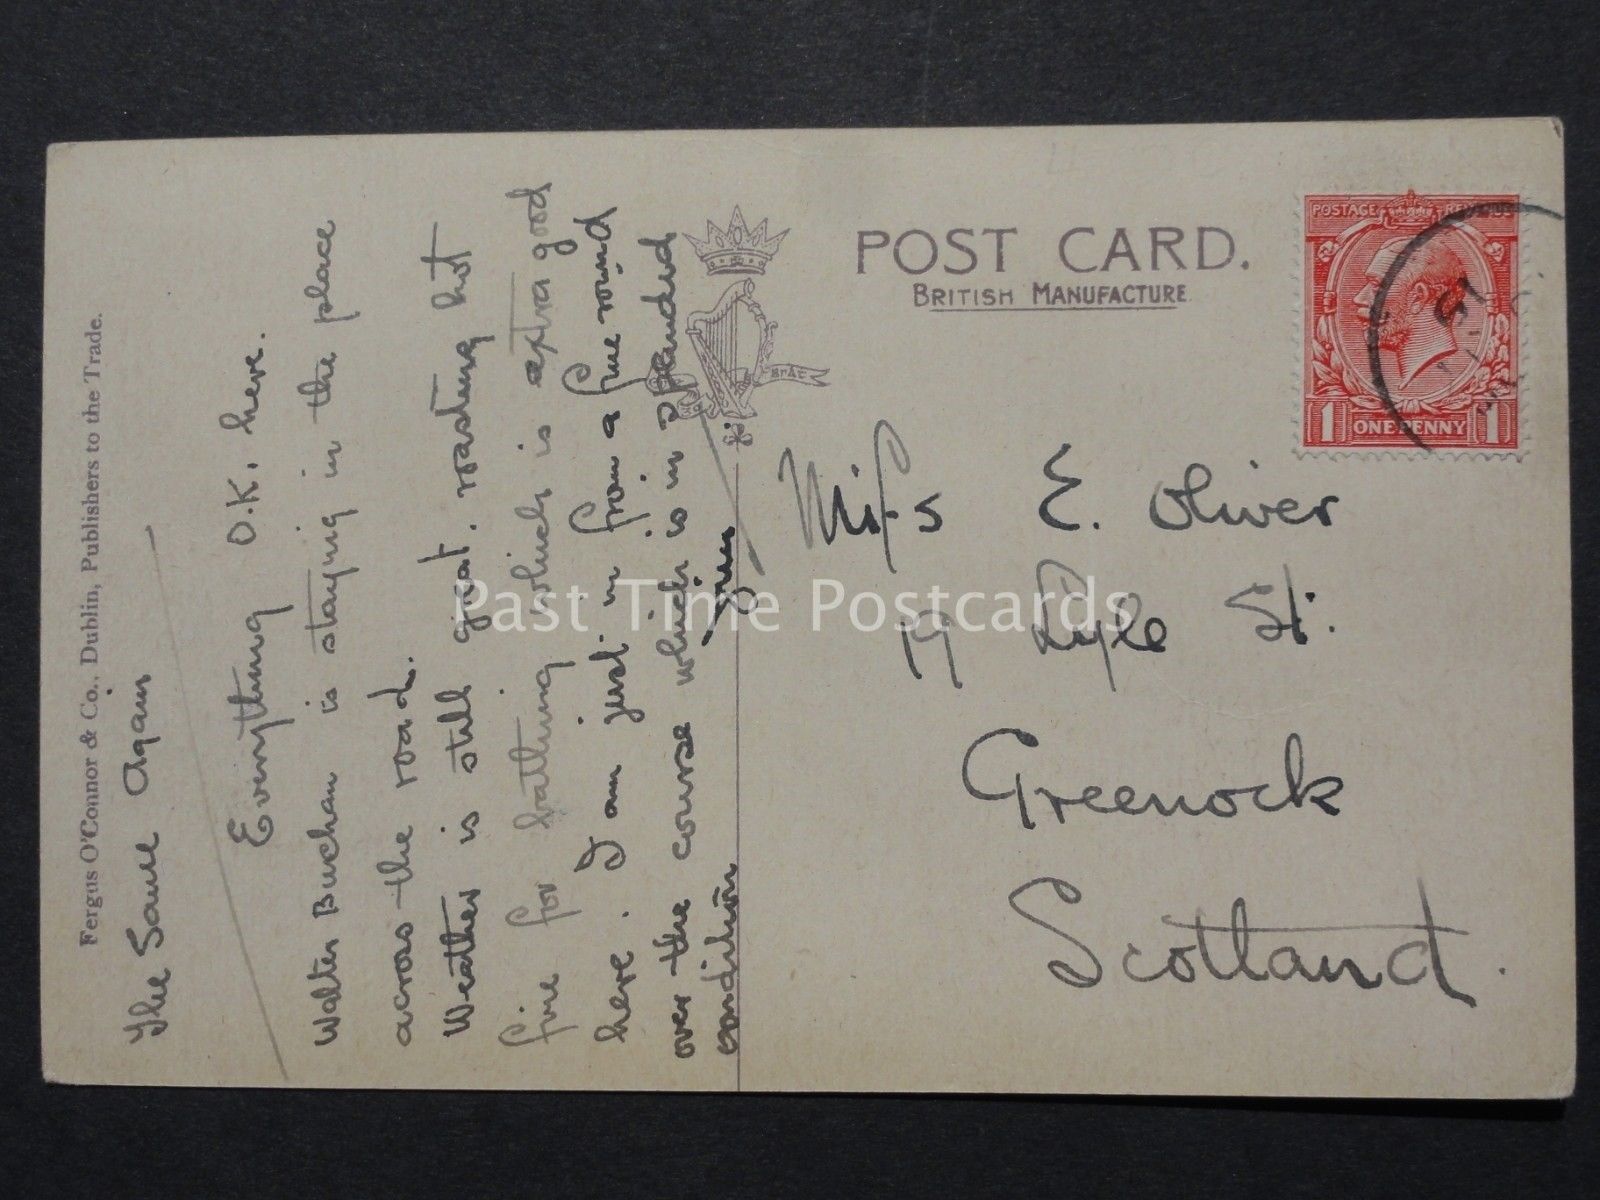 Fergus O'Connor & Co., Dublin, Publishers to the Trade.
The Same Again
Everything O.K. here.
Walter Buchan is staying in the place
across the road.
Weather is still great. roasting hot
fine for bathing which is extra good
here. I am just in from a fine round
over the course which is in splendid
condition
POST CARD.
BRITISH MANUFACTURE
POSTAGE REVENUE
1 ONE PENNY 1
Miss E. Oliver
19 Lyle St.
Greenock
Scotland.
Past Time Postcards